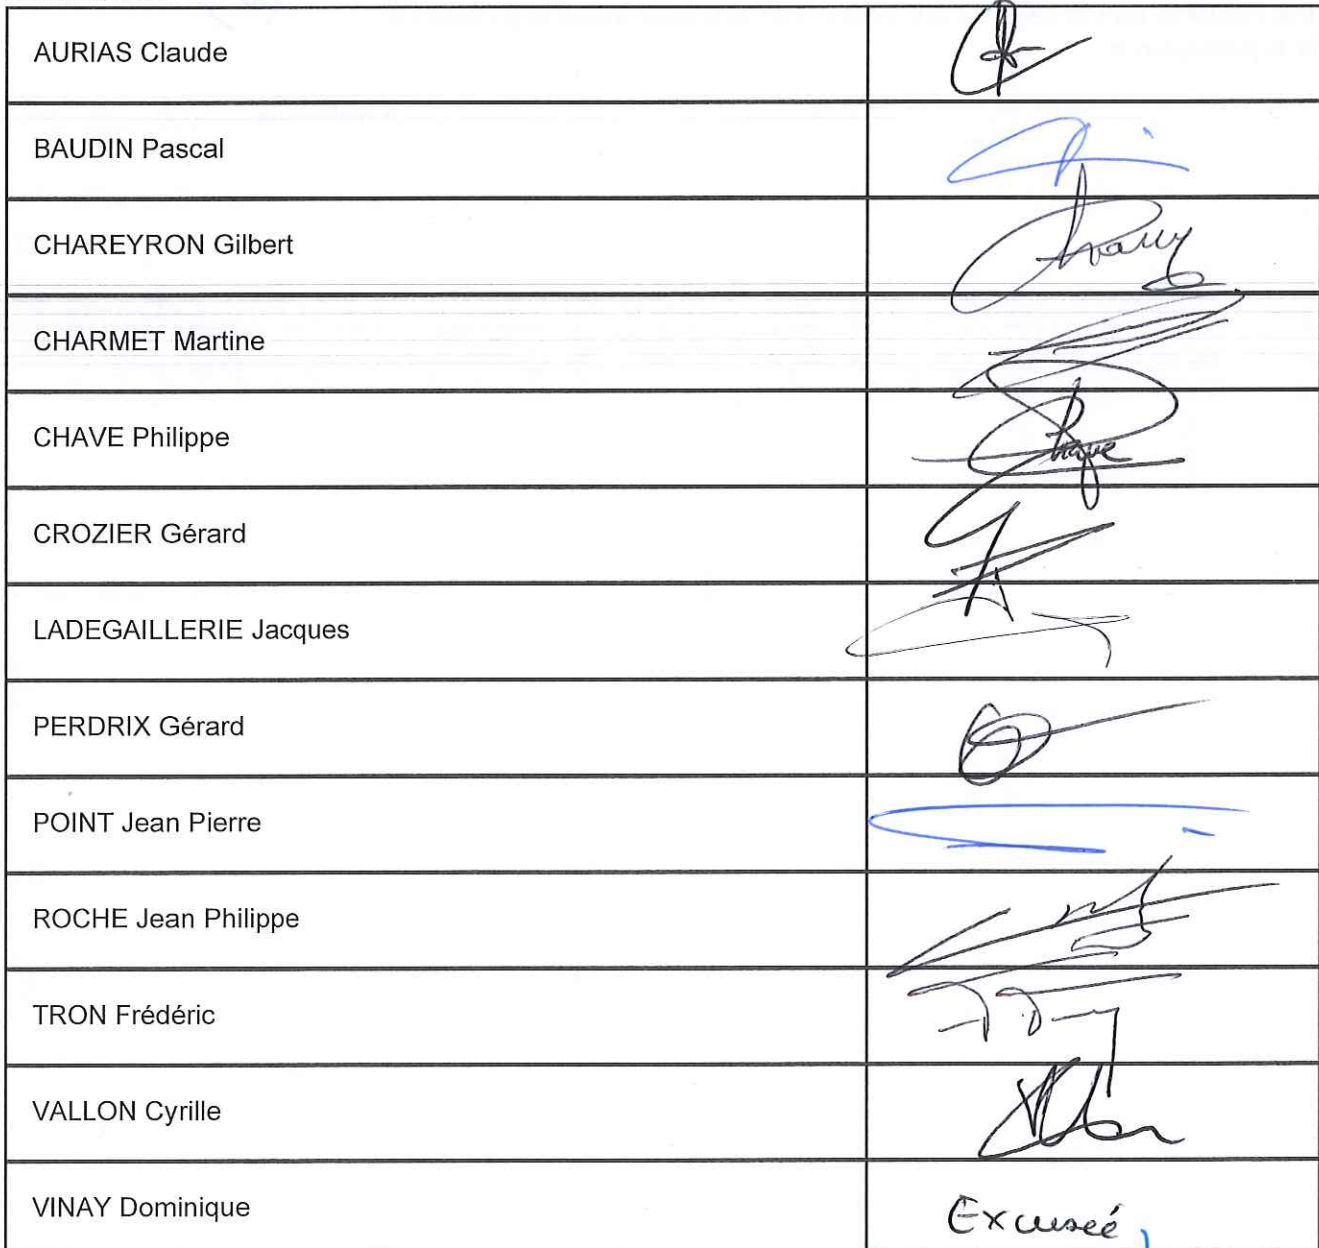 AURIAS Claude
BAUDIN Pascal
CHAREYRON Gilbert
CHARMET Martine
CHAVE Philippe
CROZIER Gérard
LADEGAILLERIE Jacques
PERDRIX Gérard
POINT Jean Pierre
ROCHE Jean Philippe
TRON Frédéric
VALLON Cyrille
VINAY Dominique Excuseé